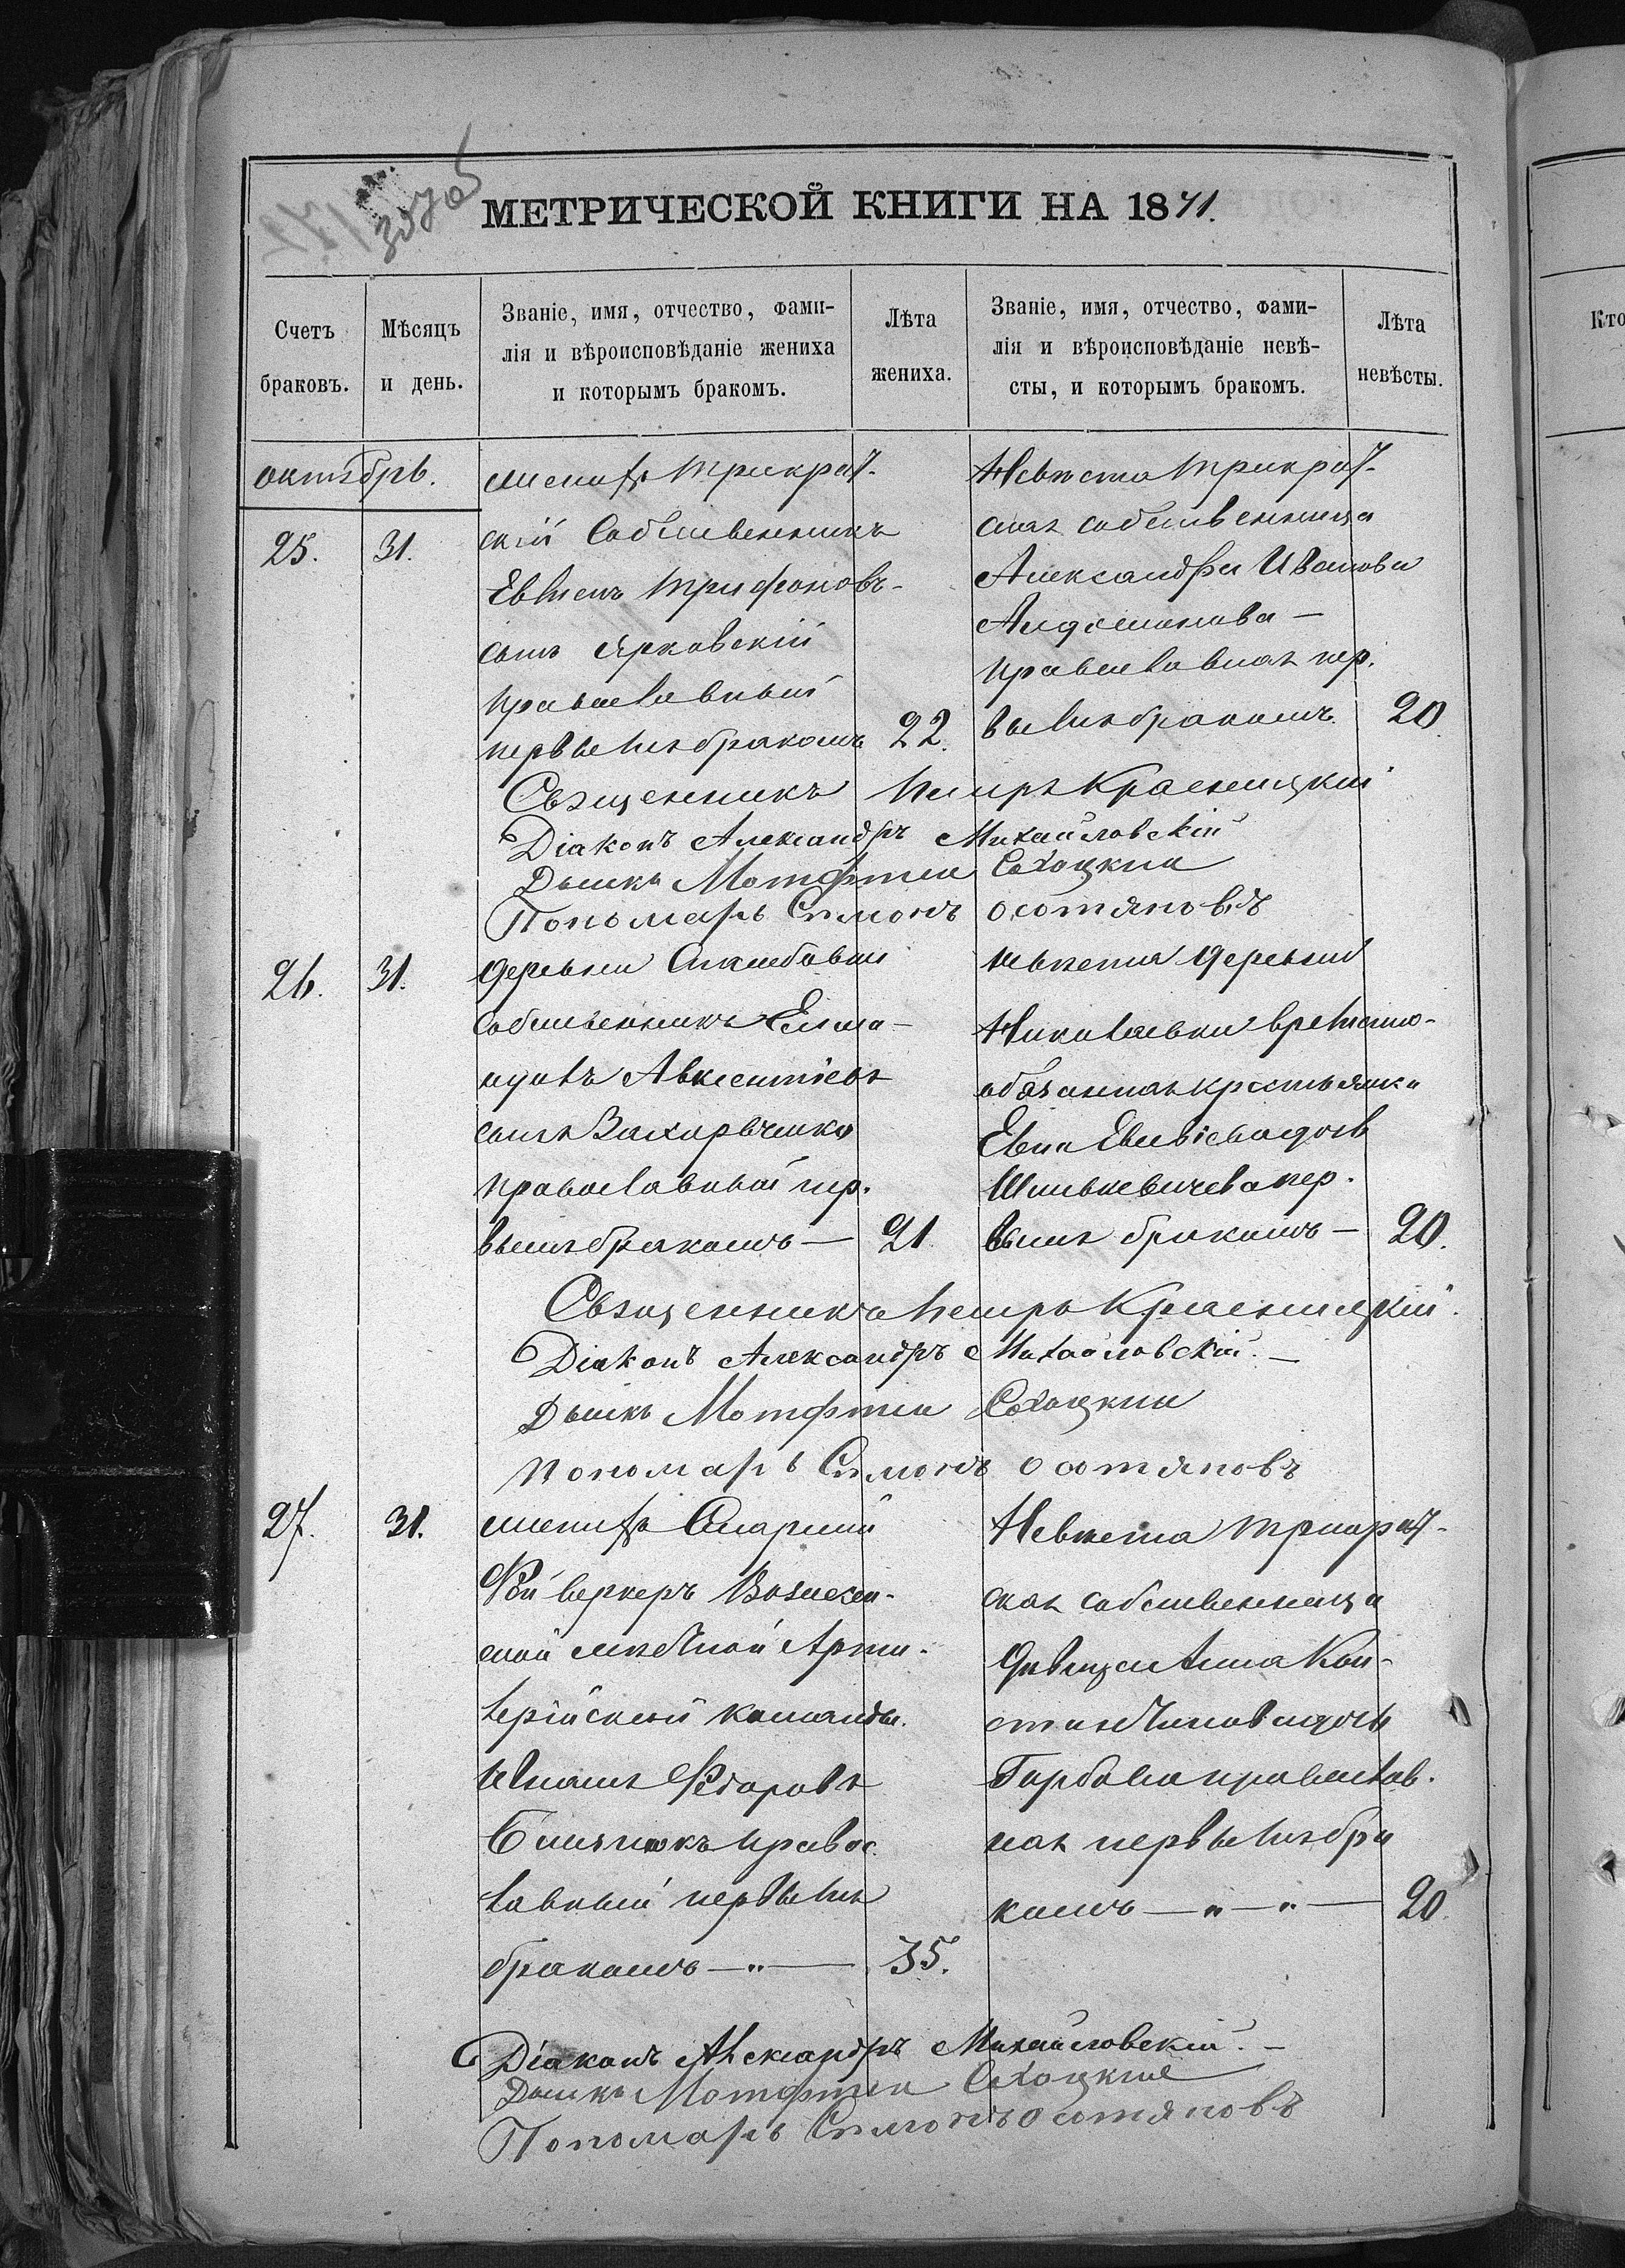 МЕТРИЧЕСКОЙ КНИГИ НА 1871.
Счетъ браковъ.
Мѣсяцъ и день.
Званіе, имя, отчество, фами-
лія и вѣроисповѣданіе жениха
и которымъ бракомъ.
Лѣта жениха.
Званіе, имя, отчество, фами-
лія и вѣроисповѣданіе невѣ-
сты, и которымъ бракомъ.
Лѣта невѣсты.
Кто
октябрь.
25.
31.
Трикрат-
скій Собственникъ
Трифоновъ
сынъ Ярковскій
православный
первымъ бракомъ 22.
Невѣста Трикрат-
ская собственница
Александра Иванова
православная пер.
вымъ бракомъ. 20.
Священникъ Петръ Красницкій
Діаконъ Александръ Михайловскій
Дьячкъ Мотфтеи
Пономарь Симонъ
26.
31.
деревни
собственникъ
Авксентіевъ
сынъ Захарченко
православный пер.
вымъ бракомъ — 21.
невѣста деревни
Николаевки временно-
обязанная крестьянка
Евва
пер.
вымъ бракомъ — 20.
Священникъ Петръ Красницкій.
Діаконъ Александръ Михайловскій. —
Дьячкъ Мотфтеи
Пономарь Симонъ
27.
31.
Старшій
Феиверкеръ Вознесен-
ской мѣстной Арти-
лерійской команды.
Игнатъ Ѳедоровъ
правос.
лавный первымъ
бракомъ — " — 35.
Невѣста Трикрат-
ская собственница
Дѣвица Анна Кон-
стантинова дочь
Горбова православ.
ная первымъ бра
комъ — " — " — 20.
Діаконъ Александръ Михайловскій. —
Дьячкъ Мотфтеи
Пономарь Симонъ